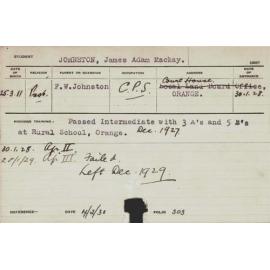 STUDENT JOHNSTON, James Adam Mackay.
DATE OF BIRTH RELIGION PARENT OR GUARDIAN OCCUPATION ADDRESS DATE OF ENTRANCE
Court House,
25.3.11 Prot. F.W.Johnston C.P.S. Local Land Board Office, 30.1.28.
ORANGE.
PREVIOUS TRAINING: Passed Intermediate with 3 A's and 5 B's
at Rural School, Orange. Dec. 1927
30.1.28. Ap. II.
20/1/29. Ap. III. Failed.
Left Dec. 1929.
REFERENCE— DATE FOLIO 303